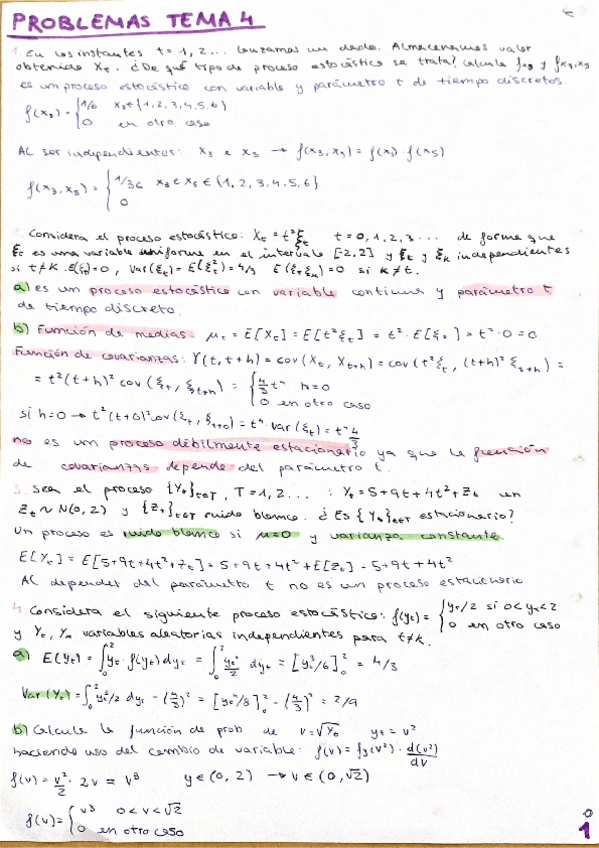 PROBLEMAS TEMA 4
1. En los instantes t = 1, 2... lanzamos un dado. Almacenamos valor
obtenido Xt. ¿De qué tipo de proceso estocástico se trata? Calcula fx3 y fx3,x5
es un proceso estocástico con variable y parámetro t de tiempo discretos.
f(x3) = { 1/6 x3 ∈ {1, 2, 3, 4, 5, 6}
0 en otro caso
AL ser independientes: x3 e x5 → f(x3, x5) = f(x3) · f(x5)
f(x3, x5) = { 1/36 x3 e x5 ∈ {1, 2, 3, 4, 5, 6}
0
2. Considera el proceso estocástico: Xt = t²ξt t = 0, 1, 2, 3... de forma que
ξt es una variable uniforme en el intervalo [-2,2] y ξt y ξk independientes
si t≠k. E(ξt)=0, Var(ξt) = E(ξt²) = 4/3 E(ξt ξk) = 0 si k≠t.
a) es un proceso estocástico con variable continua y parámetro t
de tiempo discreto.
b) Función de medias. μt = E[Xt] = E[t²ξt] = t² · E[ξt] = t² · 0 = 0
Función de covarianzas: γ(t, t+h) = cov(Xt, Xt+h) = cov(t²ξt, (t+h)² ξt+h) =
= t²(t+h)² cov(ξt, ξt+h) = { 4/3 t⁴ h=0
0 en otro caso
si h=0 → t²(t+0)² cov(ξt, ξt+0) = t⁴ · Var(ξt) = t⁴ 4/3
no es un proceso débilmente estacionario ya que la función
de covarianzas depende del parámetro t.
3. Sea el proceso {Yt}t∈T, T = 1, 2... : Yt = 5+9t+4t²+Zt con
Zt ~ N(0, 2) y {Zt}t∈T ruido blanco. ¿Es {Yt}t∈T estacionario?
Un proceso es ruido blanco si μ=0 y varianza constante.
E[Yt] = E[5+9t+4t²+Zt] = 5+9t+4t²+E[Zt] = 5+9t+4t²
AL depender del parámetro t no es un proceso estacionario
4. Considera el siguiente proceso estocástico: f(yt) = { yt/2 si 0<yt<2
0 en otro caso
y Yt, Yk variables aleatorias independientes para t≠k.
a) E(yt) = ∫₀² yt · f(yt) dyt = ∫₀² yt²/2 dyt = [yt³/6]₀² = 4/3
Var(Yt) = ∫₀² yt³/2 dyt - (4/3)² = [yt⁴/8]₀² - (4/3)² = 2/9
b) Calcula la función de prob de v = √Yt yt = v²
haciendo uso del cambio de variable: f(v) = fy(v²) · d(v²)/dv
f(v) = v²/2 · 2v = v³ y ∈ (0, 2) → v ∈ (0, √2)
f(v) = { v³ 0<v<√2
0 en otro caso
1